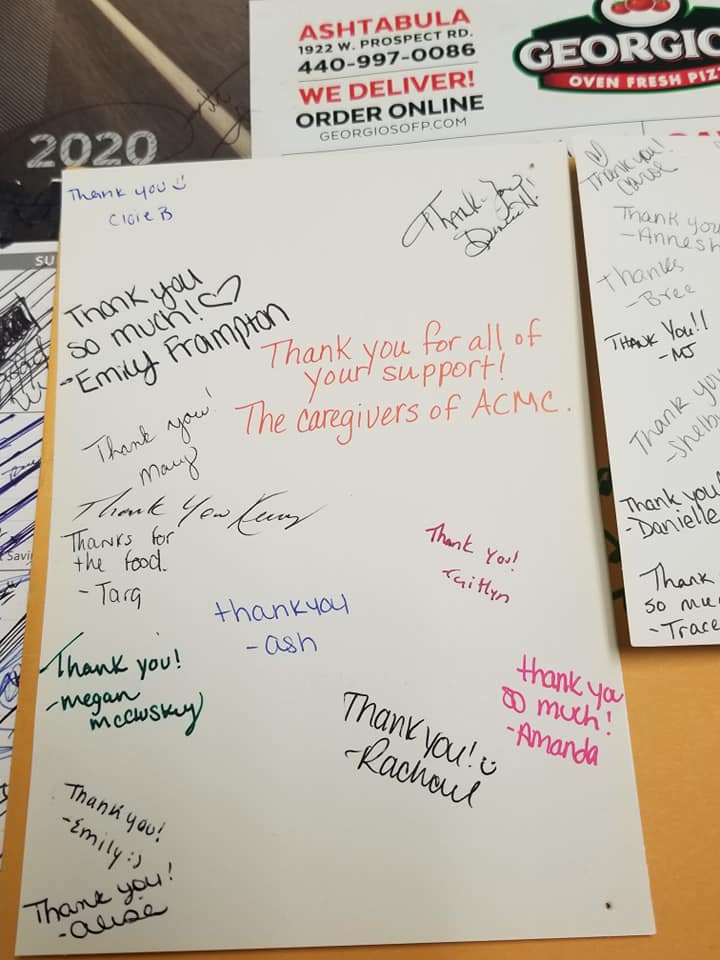 ASHTABULA
1922 W. PROSPECT RD.
440-997-0086
WE DELIVER!
ORDER ONLINE
GEORGIOSOFP.COM
GEORGIO
OVEN FRESH PIZ
2020
SU
Savi
Thank you
Cicie B
Thank You
N!
Thank you
so much!
-Emily Frampton
Thank you for all of
your support!
The caregivers of ACMC.
Thank you!
Mary
Thank You
Thanks for
the food.
- Tara
Thank you!
-Caitlyn
thankyou
- ash
Thank you!
-megan
mccluskey
thank you
so much!
-Amanda
Thank you!
-Rachael
Thank you!
-Emily :)
Thank you!
-alise
Thank you!
Carol
Thank you
-Annesh
Thanks
-Bree
Thank You!!
-MJ
Thank you
-Shelb
Thank you!
-Danielle
Thank
so mu
-Trace